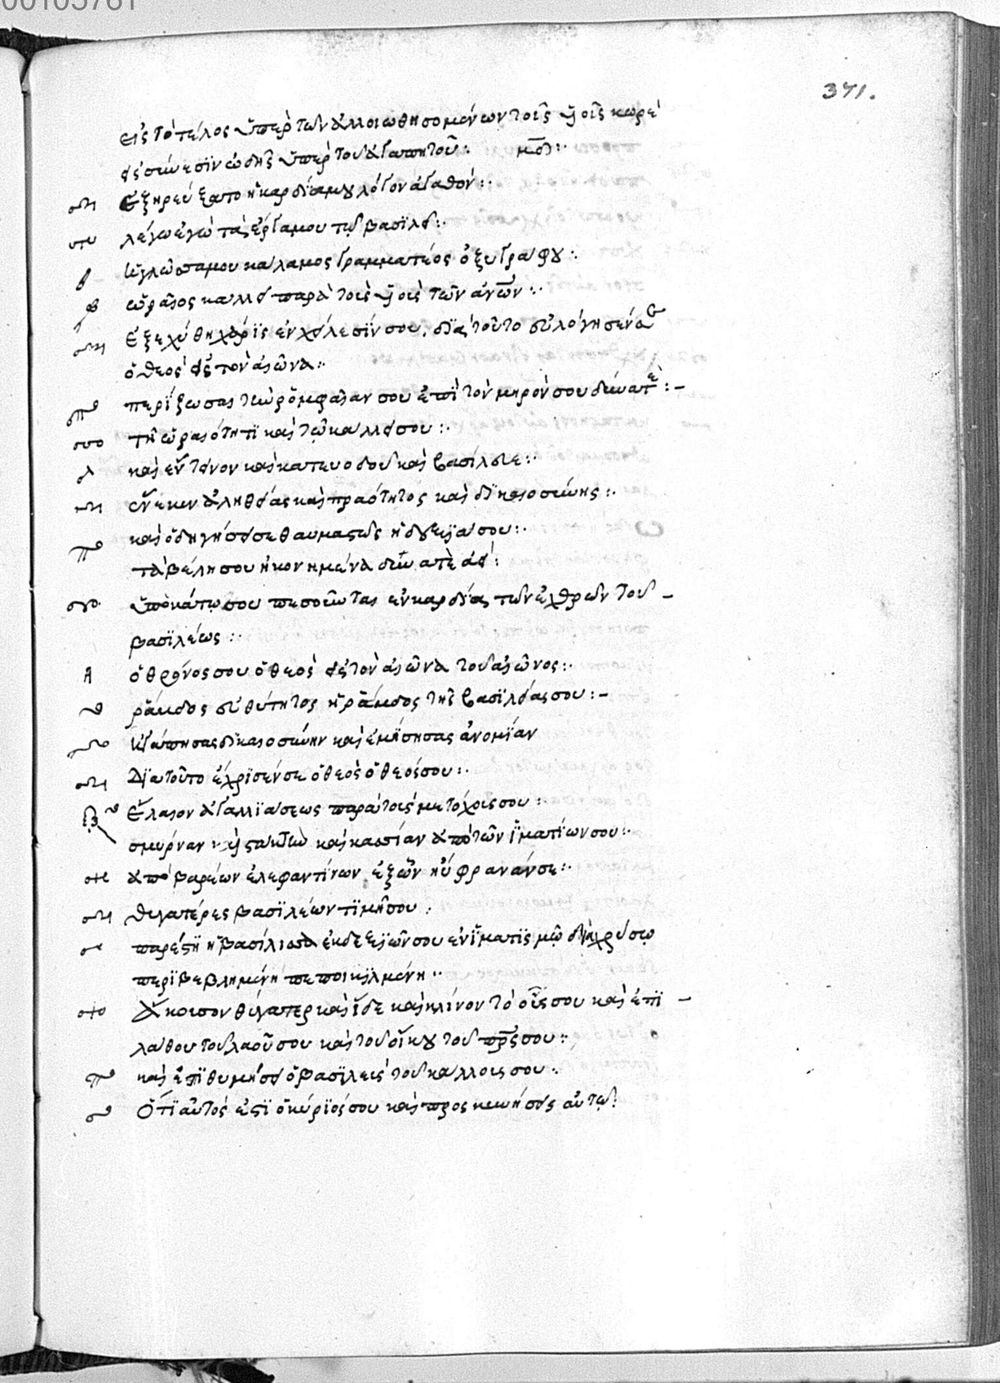 00105781
371.
εἰς τὸ τέλος ὑπὲρ τῶν ἀλλοιωθησομένων τοῖς υἱοῖς κωρέ
εἰς σύνεσϊν ὠδὴς ὑπὲρ τοῦ ἀγαπητοῦ:
Ἐξηρεύξατο ἡ καρδία μου λόγον ἀγαθόν:
λέγω ἐγὼ τὰ ἔργα μου τῷ βασϊλεῖ:
Ἡ γλῶσσα μου καλαμος γραμματέος ὀξυγράφου:
ὡραῖος καλλει παρὰ τοὺς υἱοὺς τῶν ἀνῶν:
Ἐξεχύθη χάρϊς ἐν χείλεσϊν σου, δϊὰ τοῦτο εὐλόγησέν σε
ὁ θεὸς εἰς τὸν αἰῶνα:
περίζωσαι τὴν ῥομφαίαν σου ἐπϊ τὸν μηρόν σου δύνατὲ:
τῆ ὡραιότητϊ καὶ τῷ καλλει σου:
καὶ ἔντεινον καὶ κατευοδοῦ καὶ βασίλευε:
ἕνεκεν ἀληθείας καὶ πραότητος καὶ δϊκαιοσύνης:
καὶ ὁδηγήσει σε θαυμαστῶς ἡ δεξιά σου:
τὰ βέλη σου ἠκονημένα δύνατὲ
ὑποκάτω σου πεσοῦνται ἐν καρδία τῶν ἐχθρῶν τοῦ
βασϊλέως:
ὁ θρόνος σου ὁ θεὸς εἰς τὸν αἰῶνα τοῦ αἰῶνος:
ῥάβδος εὐθύτητος ἡ ῥάβδος τῆς βασϊλείας σου:
Ἠγάπησας δϊκαιοσύνην καὶ ἐμίσησας ἀνομίαν
Δϊα τοῦτο ἔχρϊσέν σε ὁ θεὸς ὁ θεός σου:
Ἔλαιον ἀγαλλϊάσεως παρὰ τοὺς μετόχους σου:
σμύρναν καὶ στακτὴ καὶ κασσίαν ἀπὸ τῶν ἱματίων σου:
ἀπὸ βαρέων ἐλεφαντίνων ἐξ ὧν ηὔφρανάν σε:
θυγατέρες βασϊλέων τϊμῆ σου:
παρέστη ἡ βασίλισσα ἐκ δεξϊῶν σου ἐν ἱματϊσμῷ διαχρύσῳ
περϊβεβλημένη πεποικιλμένη:
Ἄκουσον θύγατερ καὶ ἴδε καὶ κλίνον τὸ οὖς σου καὶ ἐπϊ
λάθου τοῦ λαοῦ σου καὶ τοῦ οἴκου τοῦ πρς σου:
καὶ ἐπϊθυμήσει ὁ βασϊλεὺς τοῦ καλλους σου:
Ὅτϊ αὐτός ἐστϊ ὁ κύρϊός σου καὶ προσκυνήσεις αὐτῷ: